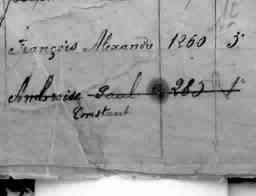 François Alexandre 1260 5
Ambroise Paul 280 1
Constant